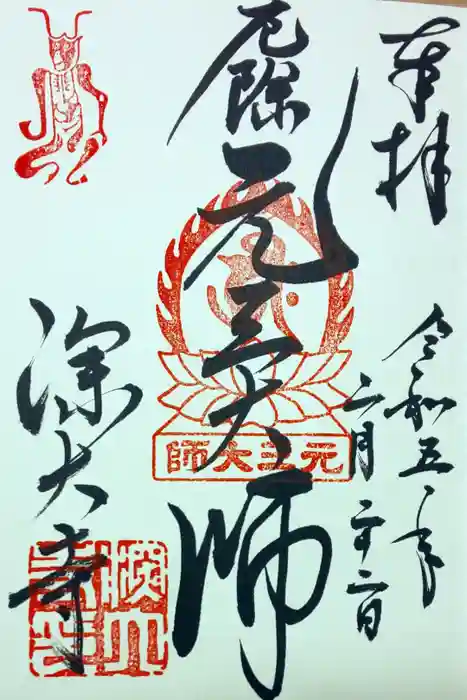 奉拝
令和五年
二月二十二日
厄除元三大師
元三大師
深大寺